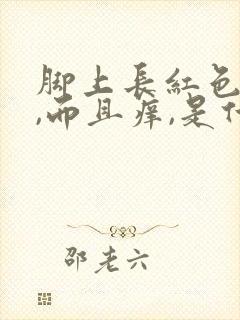 脚上長紅色
,而且痒,是什
邵老六